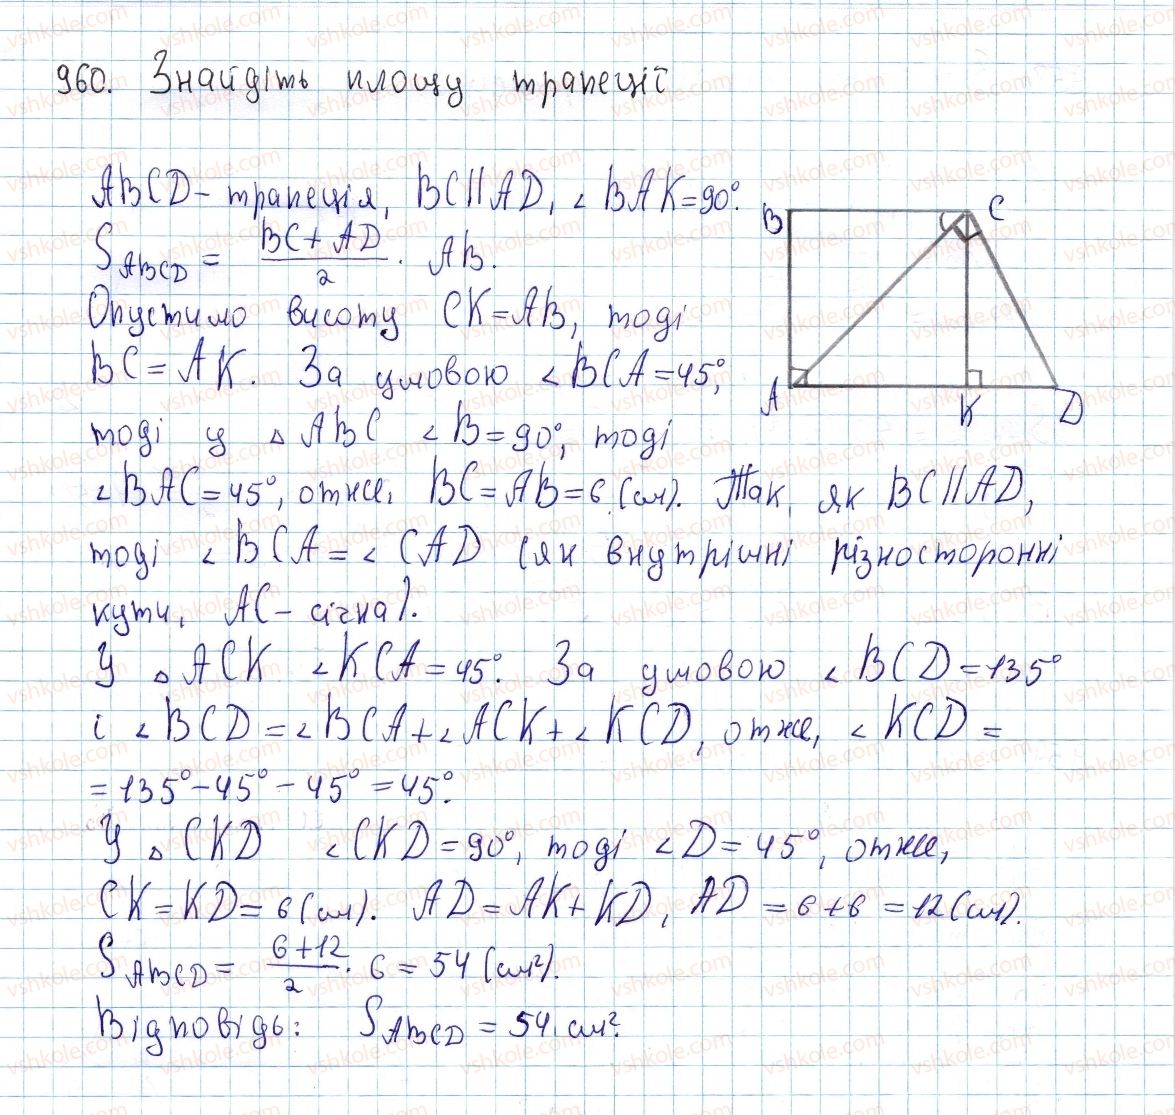 960. Знайдіть площу трапеції
ABCD - трапеція, BC || AD, ∠BAK = 90°.
S_ABCD = (BC + AD)/2 · AB.
Опустимо висоту CK = AB, тоді
BC = AK. За умовою ∠BCA = 45°,
тоді у △ABC ∠B = 90°, тоді
∠BAC = 45°, отже, BC = AB = 6 (см). Так, як BC || AD,
тоді ∠BCA = ∠CAD (як внутрішні різносторонні
кути, AC - січна).
У △ACK ∠KCA = 45°. За умовою ∠BCD = 135°
і ∠BCD = ∠BCA + ∠ACK + ∠KCD, отже, ∠KCD =
= 135° - 45° - 45° = 45°.
У △CKD ∠CKD = 90°, тоді ∠D = 45°, отже,
CK = KD = 6 (см). AD = AK + KD, AD = 6 + 6 = 12 (см).
S_ABCD = (6 + 12)/2 · 6 = 54 (см²).
Відповідь: S_ABCD = 54 см².
B
C
A
K
D
vshkole.com